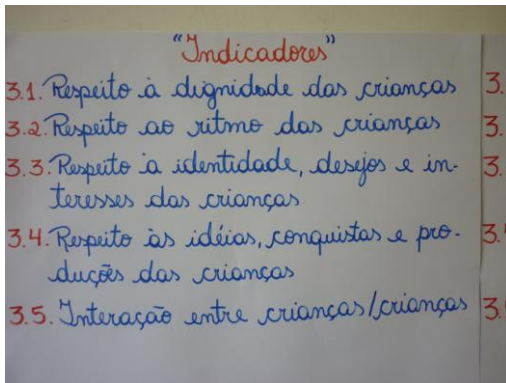 "Indicadores"
3.1. Respeito à dignidade das crianças 3.
3.2. Respeito ao ritmo das crianças 3.
3.3. Respeito à identidade, desejos e in- 3.
teresses das crianças
3.4. Respeito às idéias, conquistas e pro- 3.
duções das crianças
3.5. Interação entre crianças/crianças 3.